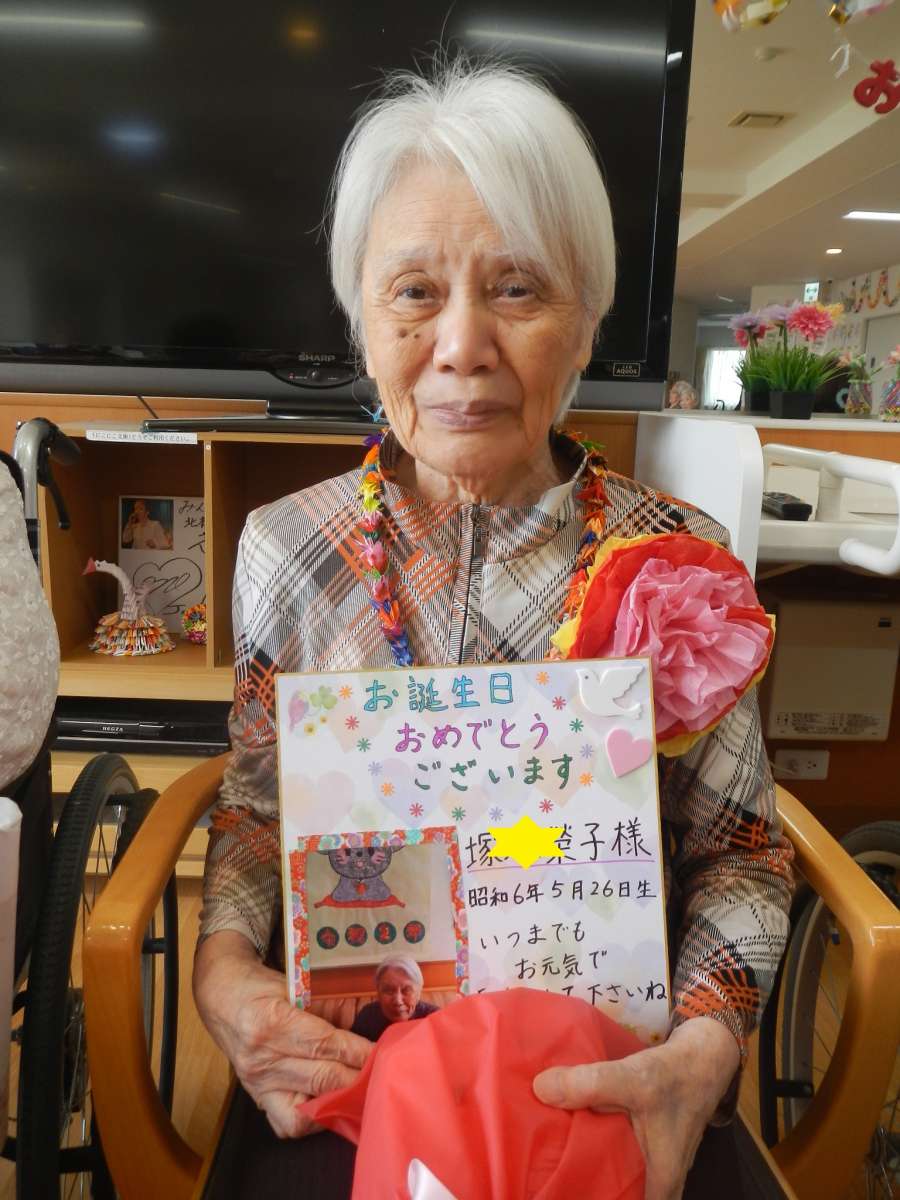 お
SHARP
LED
AQUOS
みん
北
REGZA
お誕生日
おめでとう
ございます
塚 榮子様
昭和6年5月26日生
いつまでも
お元気で
て下さいね